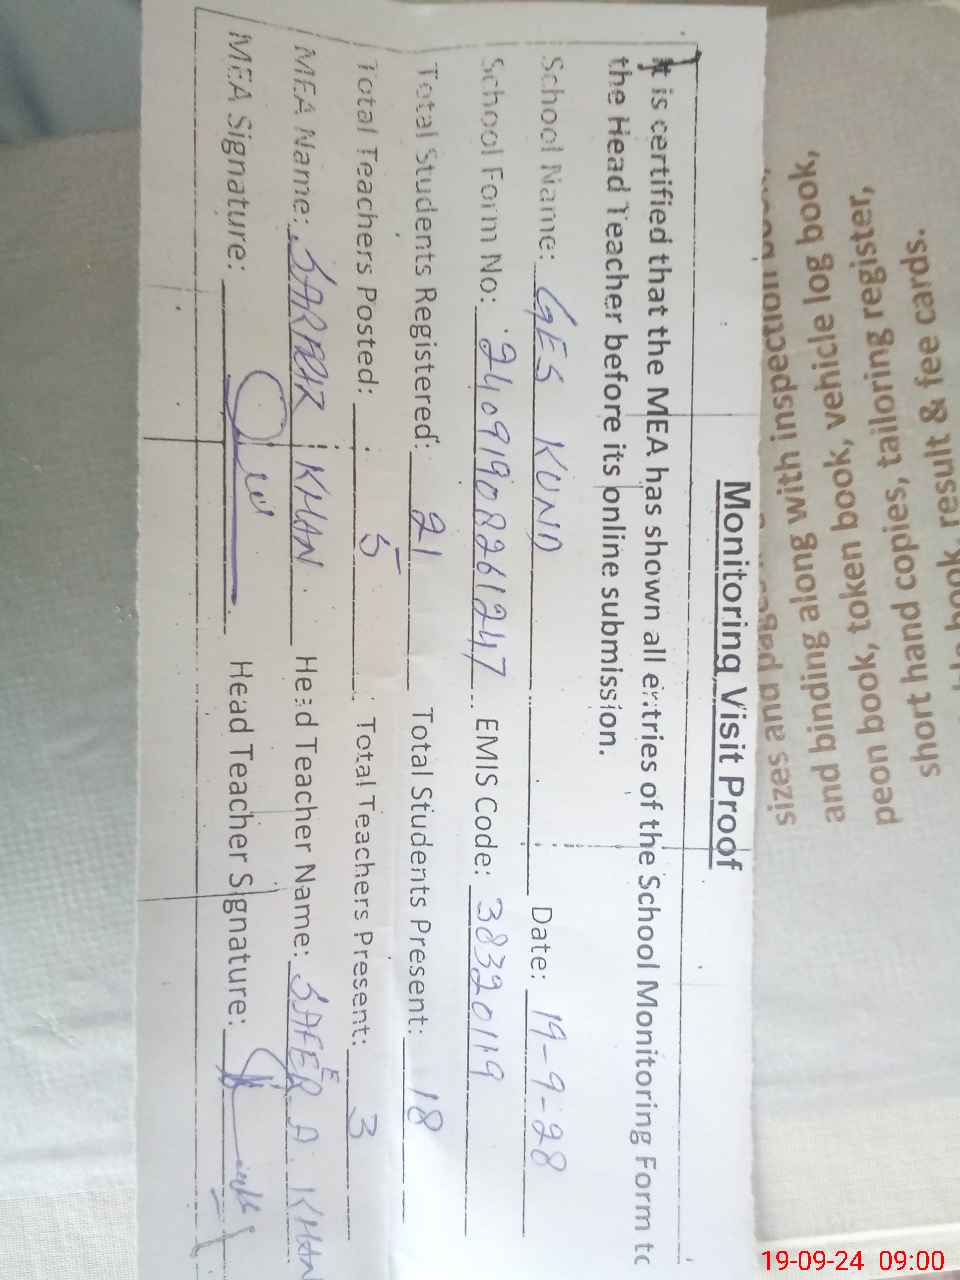 Monitoring Visit Proof
It is certified that the MEA has shown all entries of the School Monitoring Form to
the Head Teacher before its online submission.
School Name: GES KUND Date: 19-9-28
School Form No: 24091908261247 EMIS Code: 38320119
Total Students Registered: 21 Total Students Present: 18
Total Teachers Posted: 5 Total Teachers Present: 3
MEA Name: SARFRAZ KHAN Head Teacher Name: SAFEER A. KHAN
MEA Signature: Head Teacher Signature:
sizes and pages
along with inspection book,
and binding along with inspection
and binding book, token book, vehicle log book,
peon book, token book, vehicle log book,
short hand copies, tailoring register,
book, result & fee cards.
19-09-24 09:00